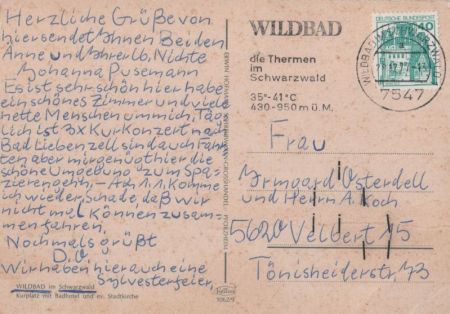 Herzliche Grüße von
hier sendet Ihnen Beiden
Anne und Ihrer lb. Nichte
Johanna Pusemann
Es ist sehr schön hier habe
ein schönes Zimmer und viele
nette Menschen um mich, Täg
lich ist 3x Kur Konzert nach
Bad Liebenzell sind auch Fahr
ten aber mir genügt hier die
schöne Umgebung zum Spa-
zierengehn, – Am 1.1. Komme
ich wieder, Schade, daß wir
nicht mal Können zusam-
menfahren.
Nochmals grüßt
D.O
Wir haben hier auch eine
Sylvesterfeier
WILDBAD im Schwarzwald
Kurplatz mit Badhotel und ev. Stadtkirche
WILDBAD
die Thermen
im
Schwarzwald
35°-41°C
430-950 m ü. M.
DEUTSCHE BUNDESPOST
40
WILDBAD
7547
Frau
Irmgard Osterdell
und Herrn A. Koch
5620 Velbert 15
Tönisheiderstr. 73